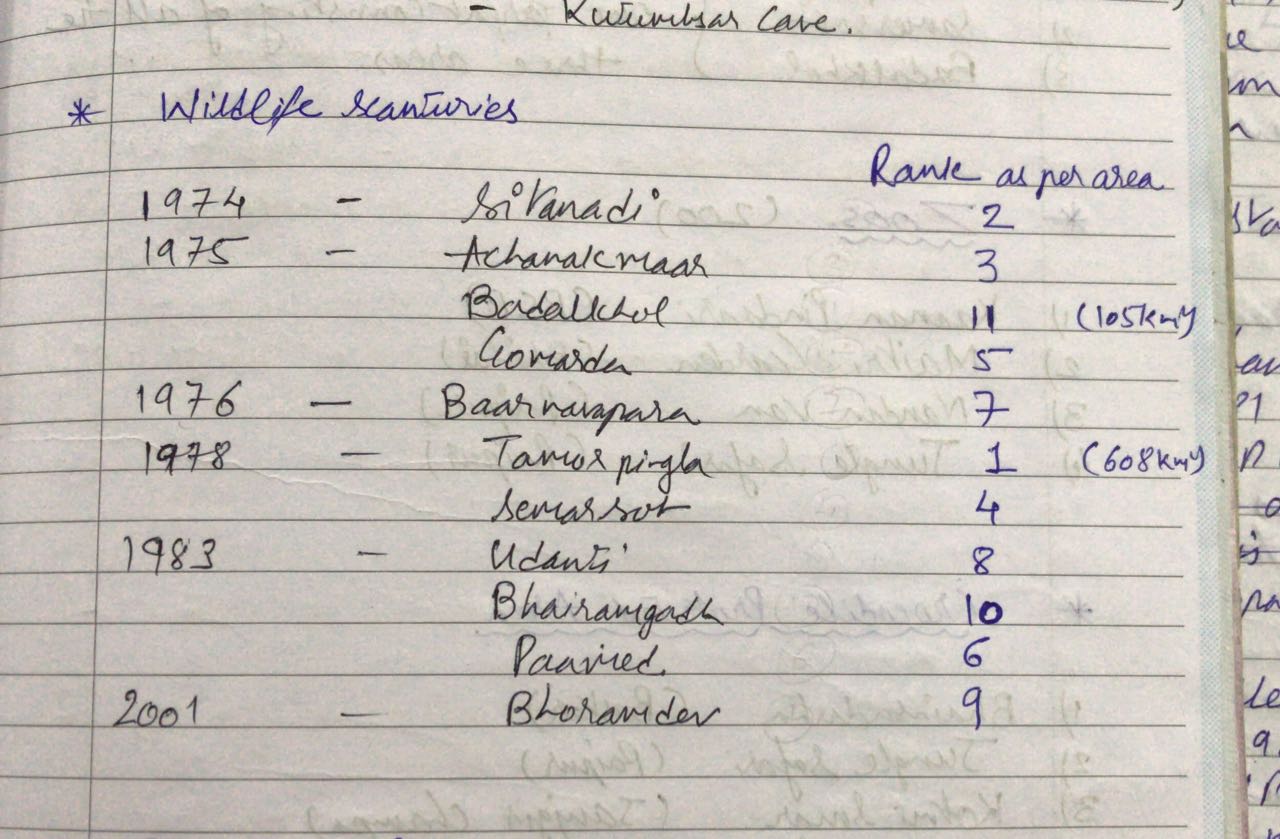 - Kutumbsar Cave.
* Wildlife scanturies
Rank as per area
1974 - SiTanadi 2
1975 - Achanakmaar 3
Badalkhol 11 (105km²)
Gomarda 5
1976 - Baarnavapara 7
1978 - Tamor pingla 1 (608km²)
Semarsot 4
1983 - Udanti 8
Bhairamgadh 10
Paamed. 6
2001 - Bhoramdev 9